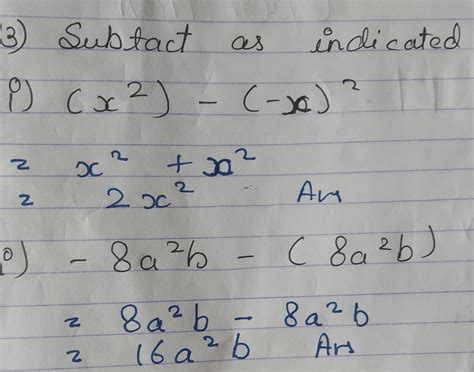 3) Subtact as indicated
i) (x²) - (-x)²
= x² + x²
= 2x² Ans
i) - 8a²b - (8a²b)
= 8a²b - 8a²b
= 16a²b Ans